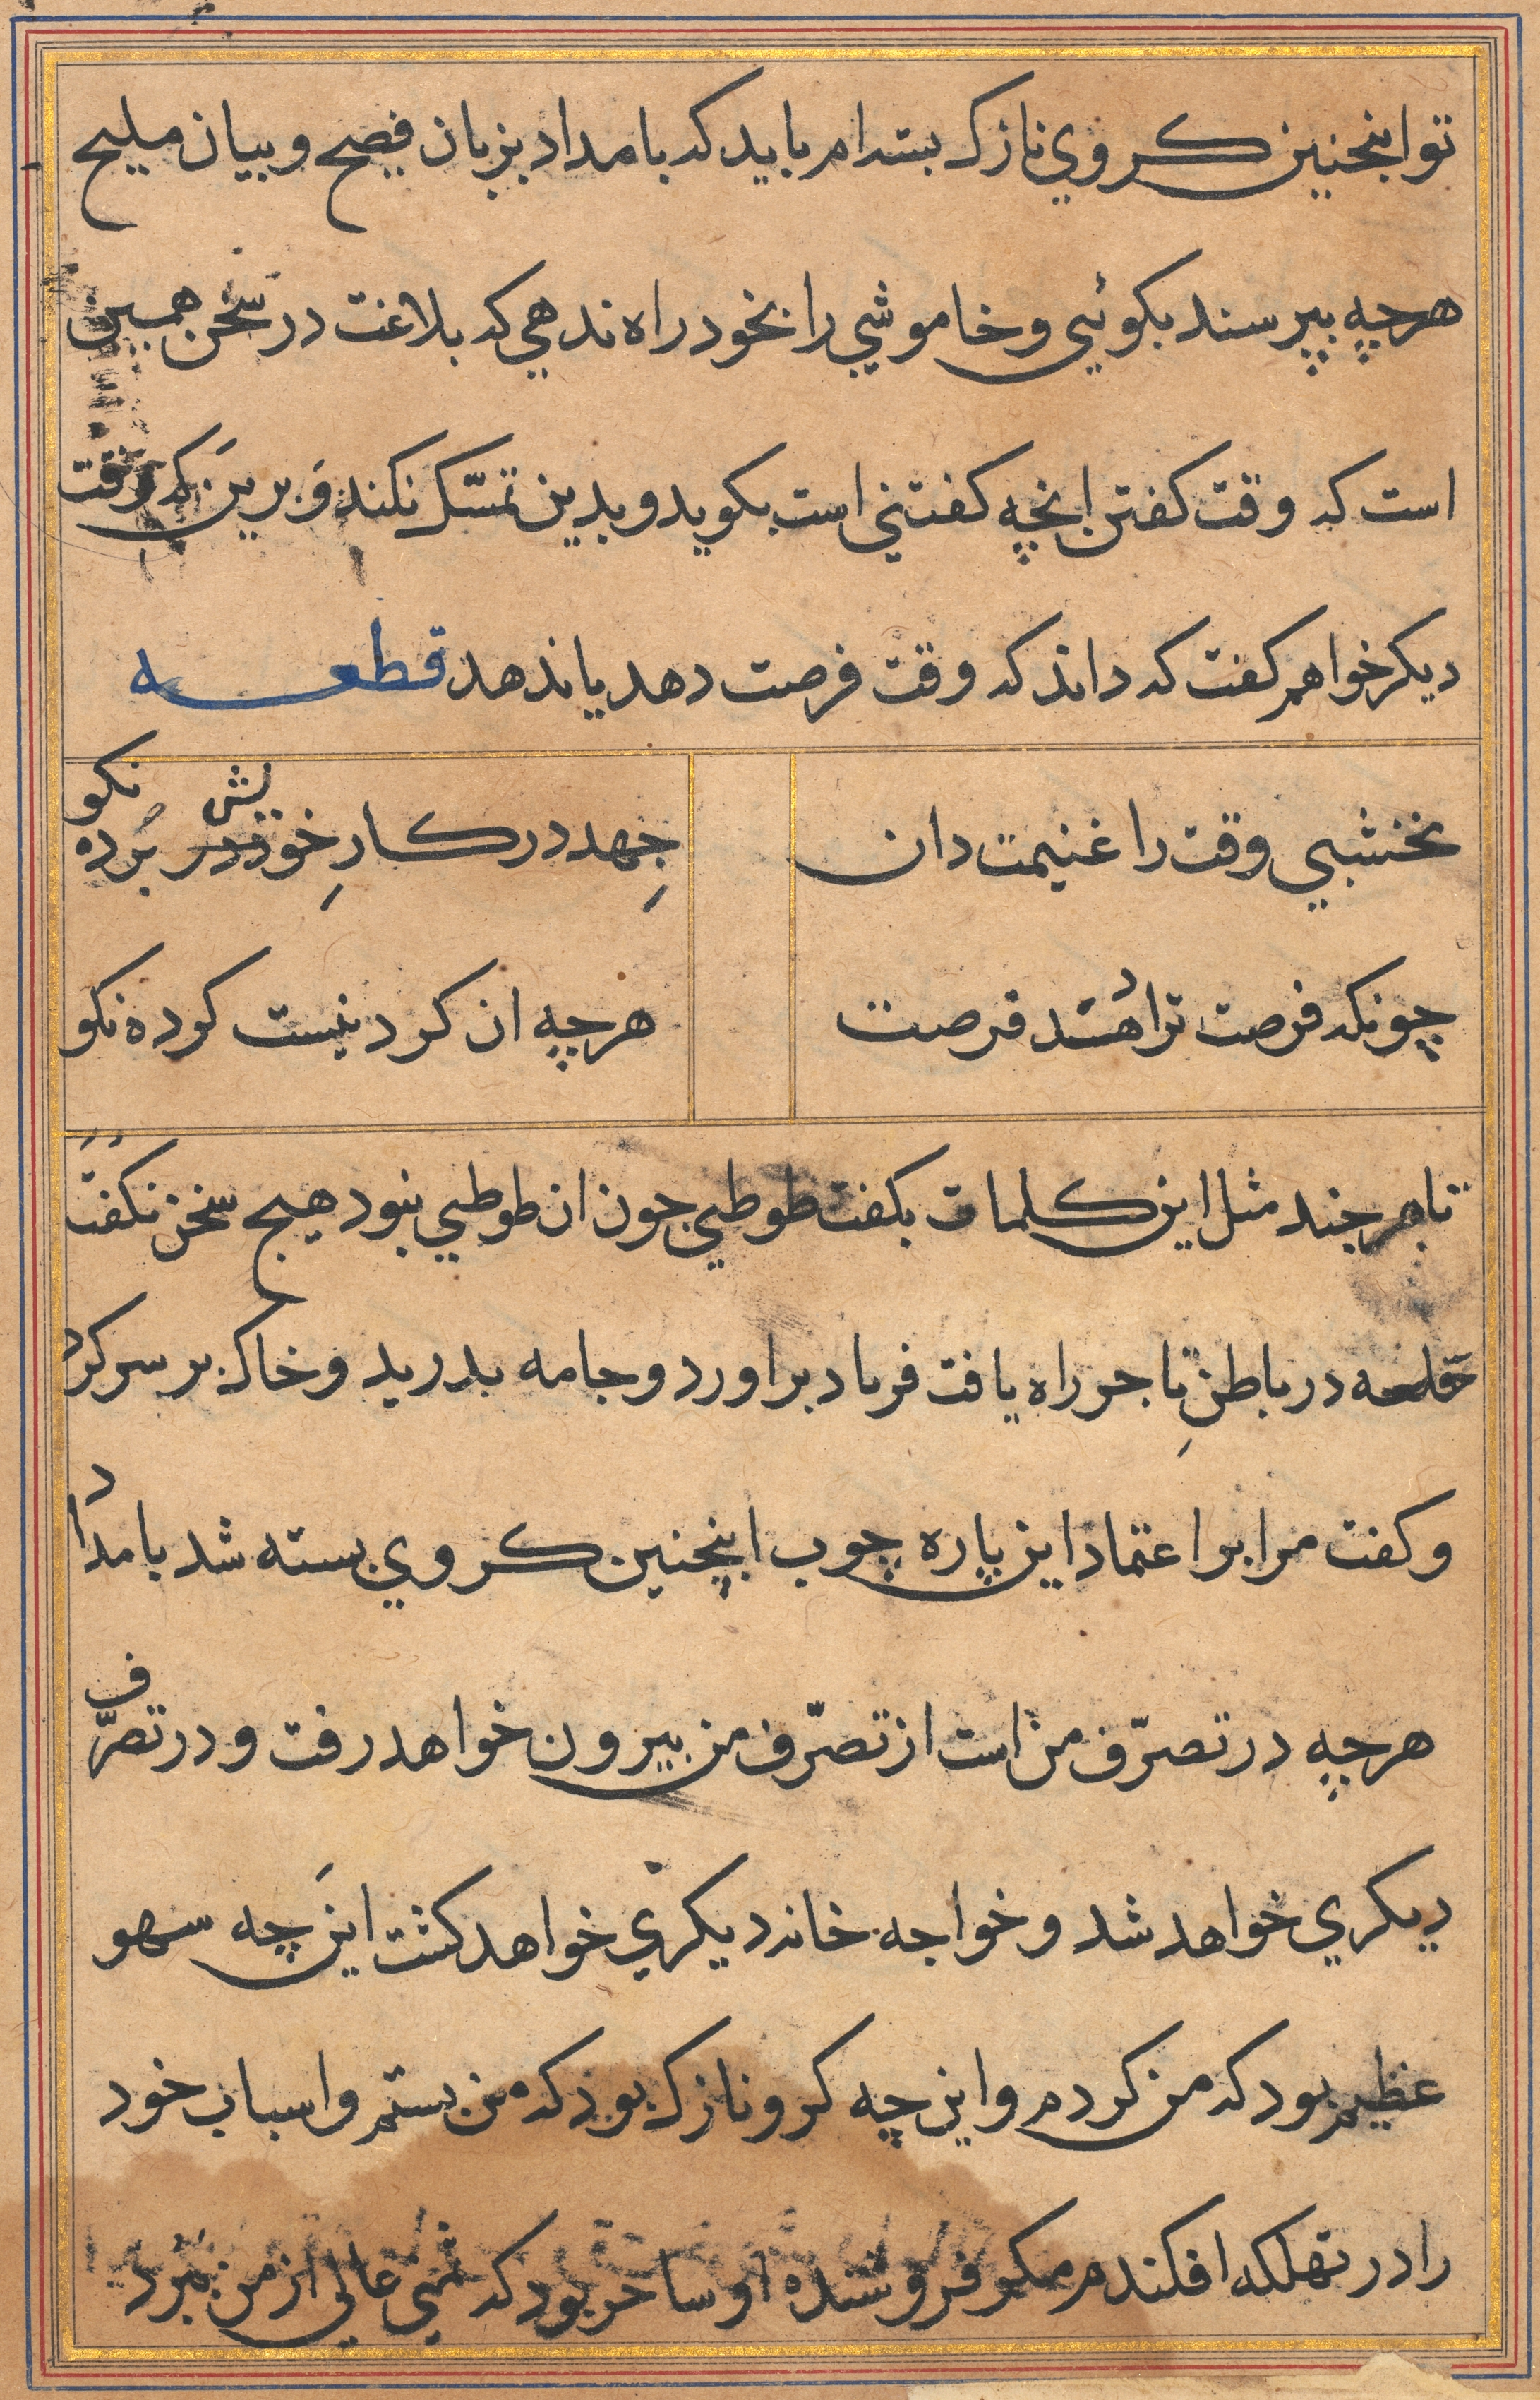 تو اینجنین کروي نازک بسته ام باید که بامداد بزبان فصیح و بیان ملیح
هرچه بپرسند بکوئي و خاموشي را بخود راه ندهي که بلاغت در سخن همین
است که وقت کفتن انچه کفتني است بکوید و بدین تمسّک نکند و برین که وقت
دیکر خواهم کفت که داند که وقت فرصت دهد یا ندهد قطعه
نخشبي وقت را غنیمت دان جهد در کارِ خویش بَرده نکو
چونکه فرصت ترا دهند فرصت هرچه ان کردنیست کرده نکو
تاجر چند مثل این کلمات بکفت طوطي چون ان طوطي نبود هیچ سخن نکفت
در باطنِ تاجر راه یافت فریاد براورد و جامه بدرید و خاک بر سر کرد
و کفت مرا بر اعتماد این پاره چوب اینچنین کروي بسته شد بامداد
هرچه در تصرّف من است از تصرّف من بیرون خواهد رفت و در تصرّف
دیکري خواهد شد و خواجه خانه دیکري خواهد کشت این چه سهو
عظیم بود که من کردم و این چه کرو نازک بود که من بستم و اسباب خود
را در تهلکه افکندم مکر فروشنده او ساحر بود که ثمني عالي از من ببرد